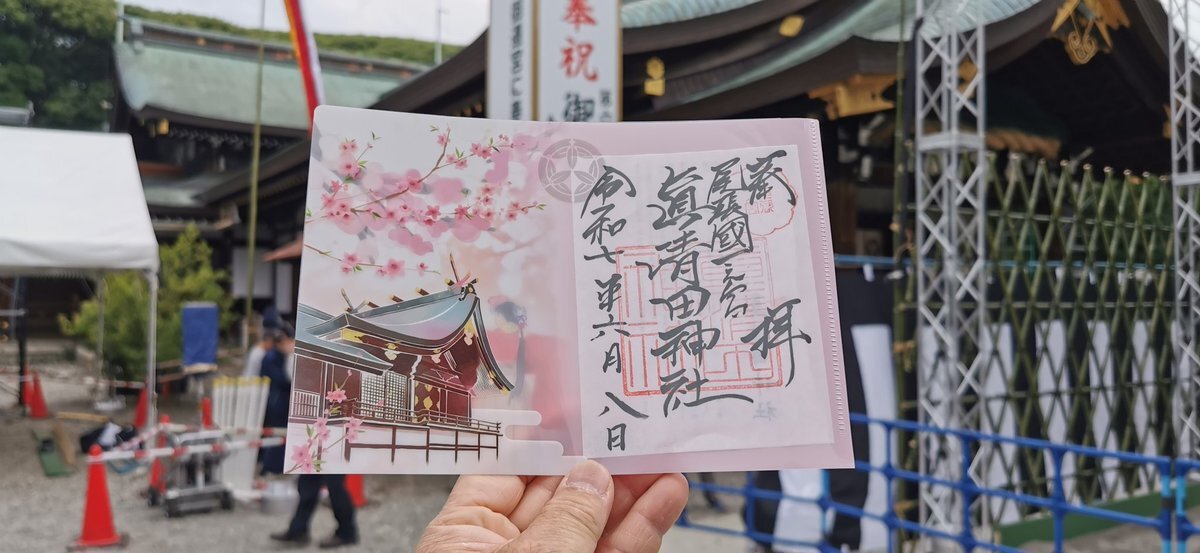 奉祝 御
奉拝
尾張國一之宮
眞清田神社
令和七年六月八日